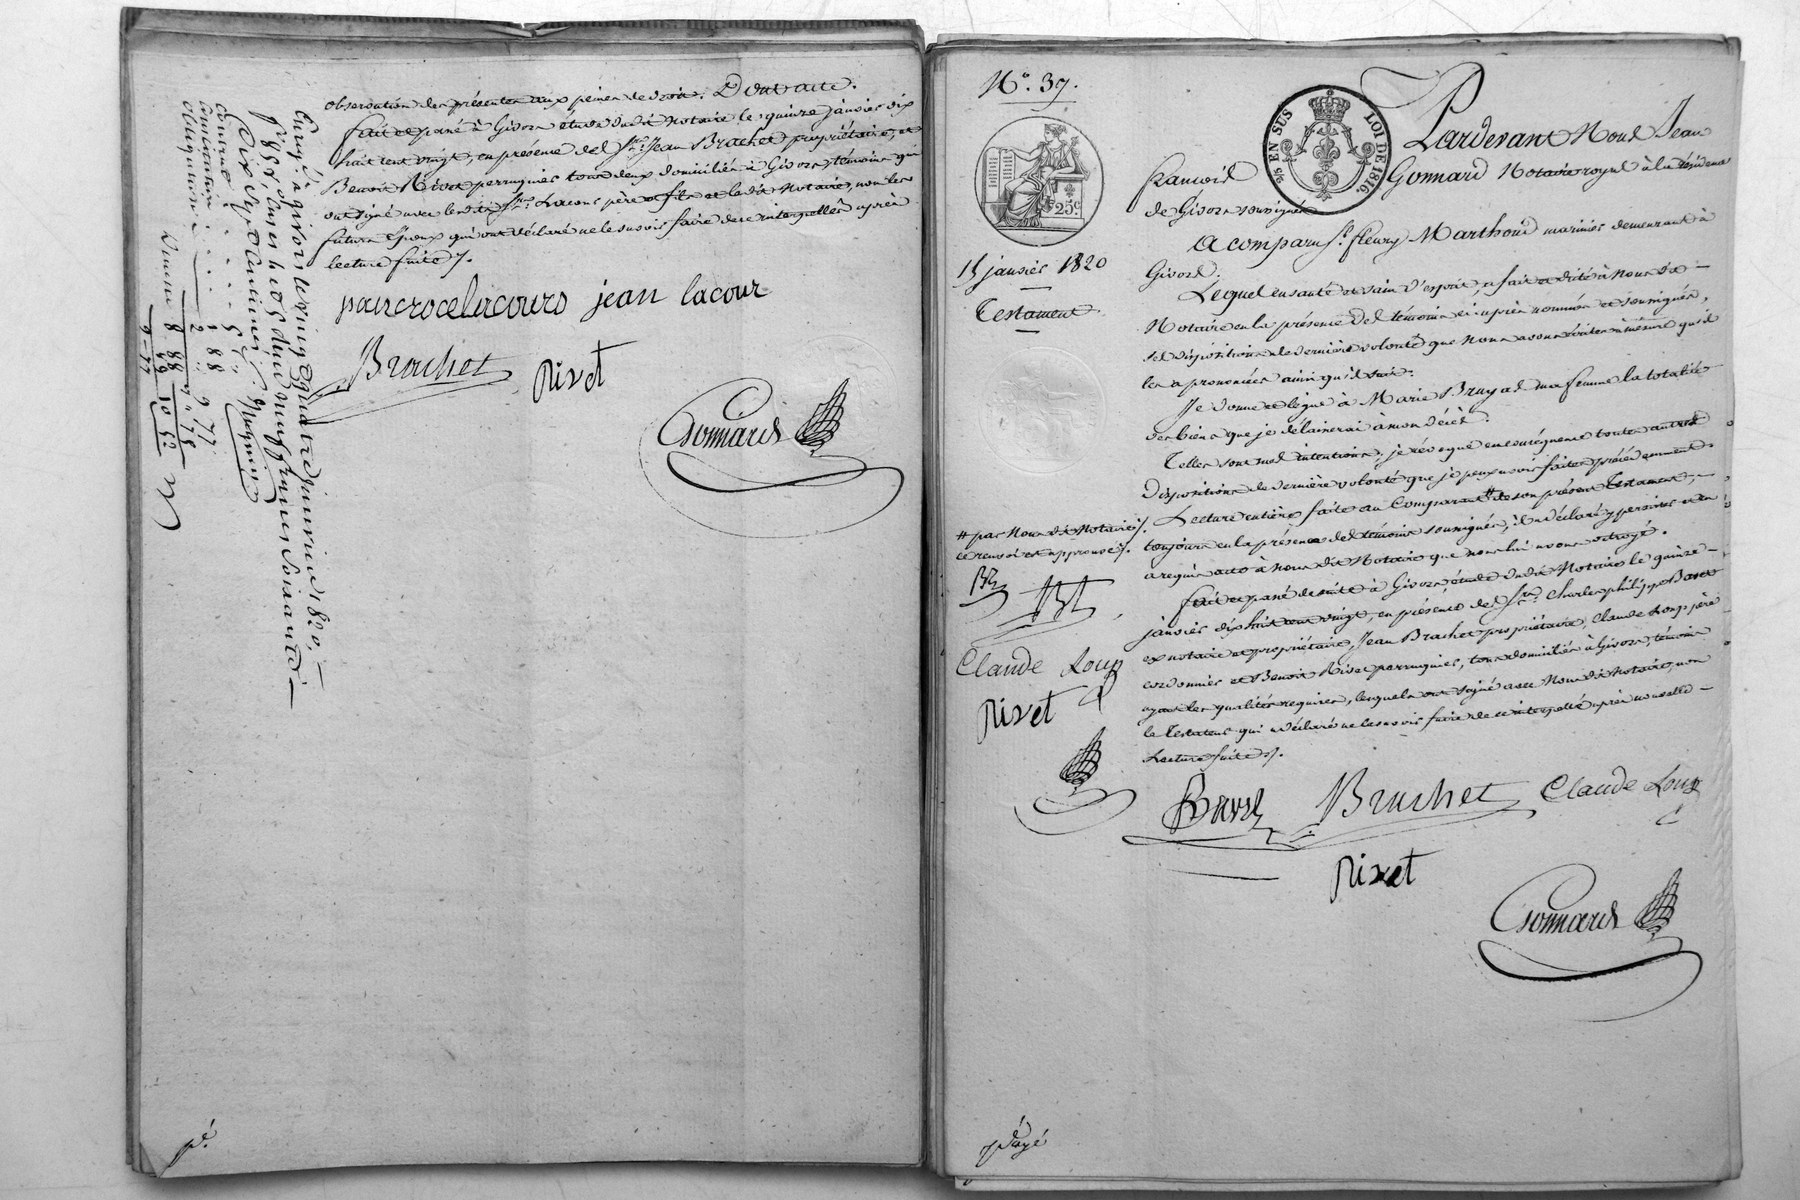 observation des présentes aux peines de droit. Dont acte.
fait et passé à Givors étude dudit Notaire le quinze janvier dix
huit cent vingt, en présence des Srs. Jean Brachet propriétaire, et
Benoit Rivet perruquier tous deux domiciliés à Givors, témoins qui
ont signé avec lesdits Srs. Lacour père et fils et ledit Notaire, non les
futurs Epoux qui ont déclaré ne le savoir faire de ce interpellés après
lecture faite ./.
pancroce lacours jean lacour
Brachet
Rivet
Gonnard
Enregé. à givors le vingt quatre janvier 1820,
contrat
obligation
pé.
No. 39.
25 c
15 janvier 1820
Testament
5/95 EN SUS
LOI DE 1816.
Pardevant Nous Jean
françois Gonnard Notaire royal à la résidence
de Givors soussigné
A comparu Sr. fleury Marthoud marinier demeurant à
Givors.
Lequel en santé et sain d'esprit, a fait et dicté à Nous dit
Notaire en la présence des témoins ci après nommés et soussignés,
ses dispositions de dernière volonté que nous avons écrites à mesure qu'il
les a prononcées ainsi qu'il suit:
Je donne et lègue à Marie Bruyas ma femme la totalité
des biens que je délaisserai à mon décès.
Telles sont mes intentions, je révoque en conséquence toutes autres
dispositions de dernière volonté que je peux avoir faites précédemment
Lecture entière faite au Comparant # de son présent Testament,
toujours en la présence des témoins soussignés, il a déclaré y persister et en
a requis acte à nous dit Notaire que nous lui avons octroyé.
fait et passé de suite à Givors étude dudit Notaire le quinze
janvier dix huit cent vingt, en présence des Srs. Charles philippe
ex notaire et propriétaire, Jean Brachet propriétaire, Claude Loup père
cordonnier et Benoit Rivet perruquier, tous domiciliés à Givors, témoins
ayant les qualités requises, lesquels ont signé avec Nous dit Notaire, non
le Testateur qui a déclaré ne le savoir faire de ce interpellé après nouvelle
lecture faite ./.
# par Nous dit Notaire ./.
ce renvoi est approuvé ./.
Claude Loup
Rivet
Brachet
Claude Loup
Rivet
Gonnard
payé